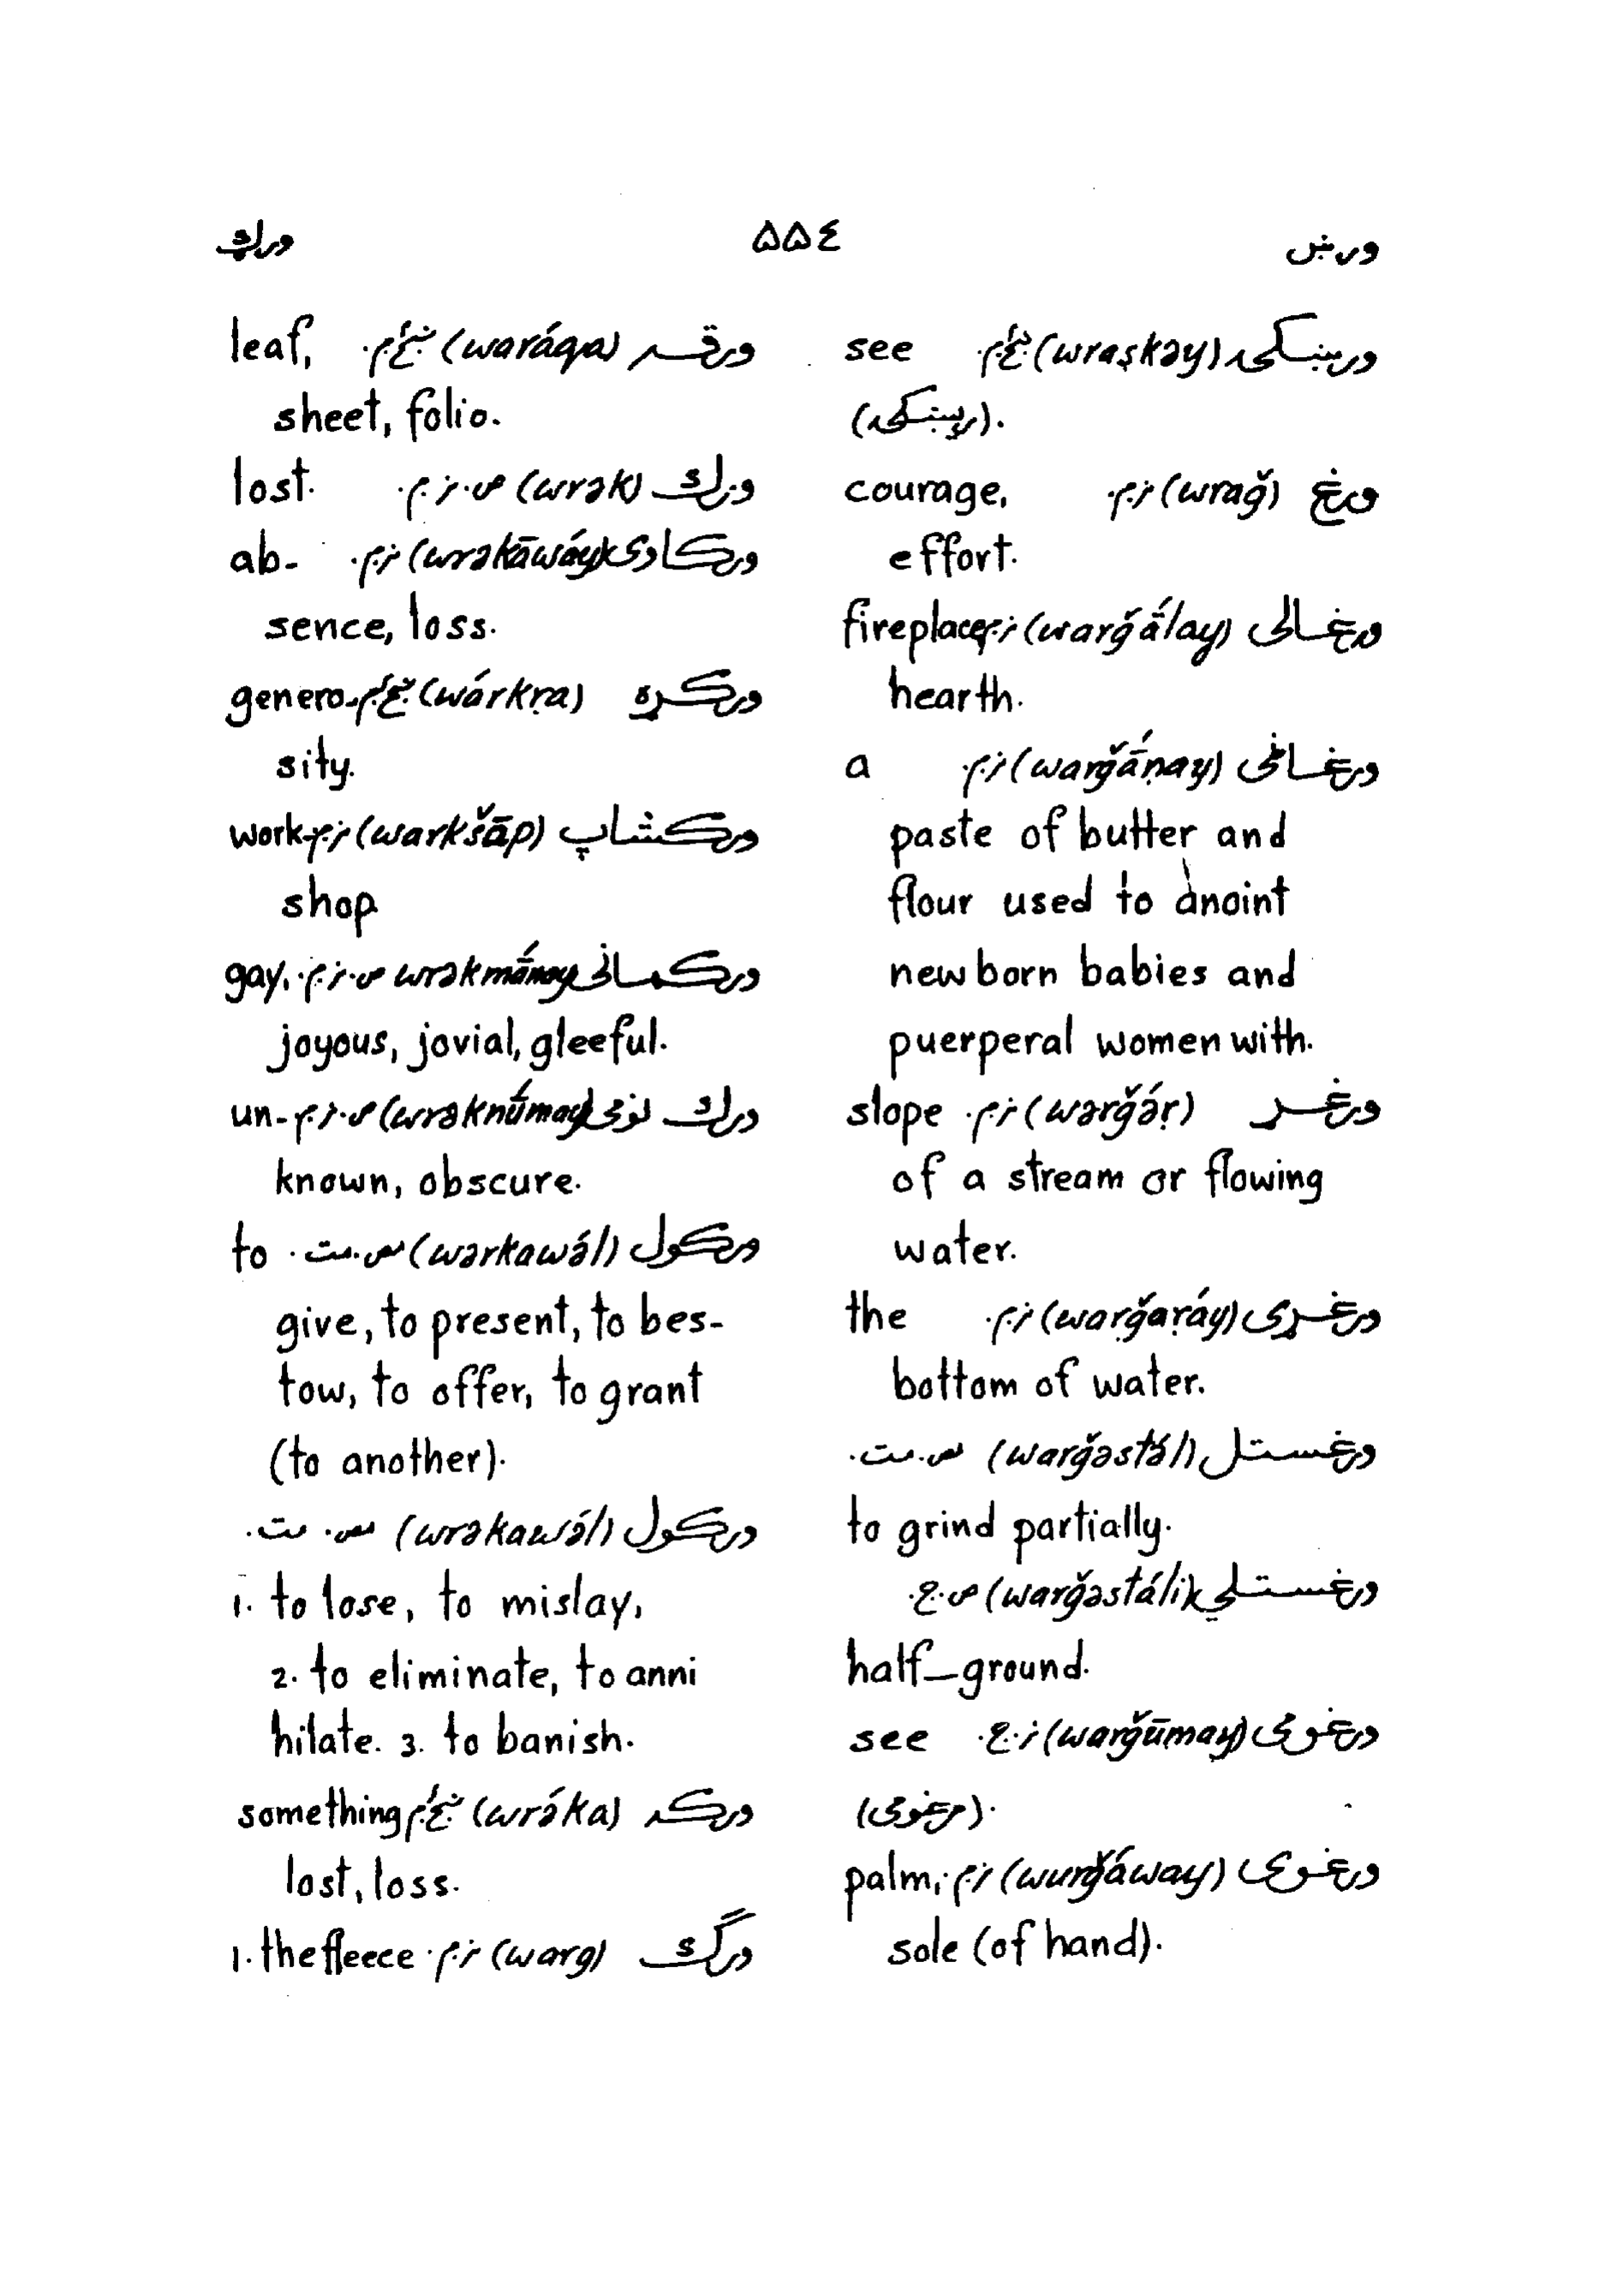 ورښ ۵۵٤ ورګ
(wraṣkəy) see
ورغ (wrağ) ن.م. courage,
effort.
ورغالی (warğā́lay) ن.م. fireplace,
hearth.
ورغاڼی (warğā́ṇay) ن.م. a
paste of butter and
flour used to anoint
newborn babies and
puerperal women with.
ورغړ (wərğə́ṛ) ن.م. slope
of a stream or flowing
water.
ورغړی (warğaṛáy) ن.م. the
bottom of water.
ورغستل (warğəstə́l)
to grind partially.
(warğəstálik)
half-ground.
ورغومی (warğūmay) see
(مرغومی).
ورغوی (wurğáway) ن.م. palm,
sole (of hand).
ورقه (waráqa) leaf,
sheet, folio.
ورک (wrək) ص.ن.م. lost.
ورکاوی (wrəkāwáy) ن.م. ab-
sence, loss.
ورکړه (wárkṛa) genero-
sity.
ورکشاپ (warkšāp) ن.م. work-
shop
ورکمانی wrəkmā́nay ص.ن.م. gay,
joyous, jovial, gleeful.
ورک نومی (wrəknū́may) ص.ن.م. un-
known, obscure.
ورکول (wərkawə́l) to
give, to present, to bes-
tow, to offer, to grant
(to another).
ورکول (wrəkawə́l)
1. to lose, to mislay,
2. to eliminate, to anni
hilate. 3. to banish.
ورکه (wrə́ka) something
lost, loss.
ورګ (warg) ن.م. 1. the fleece